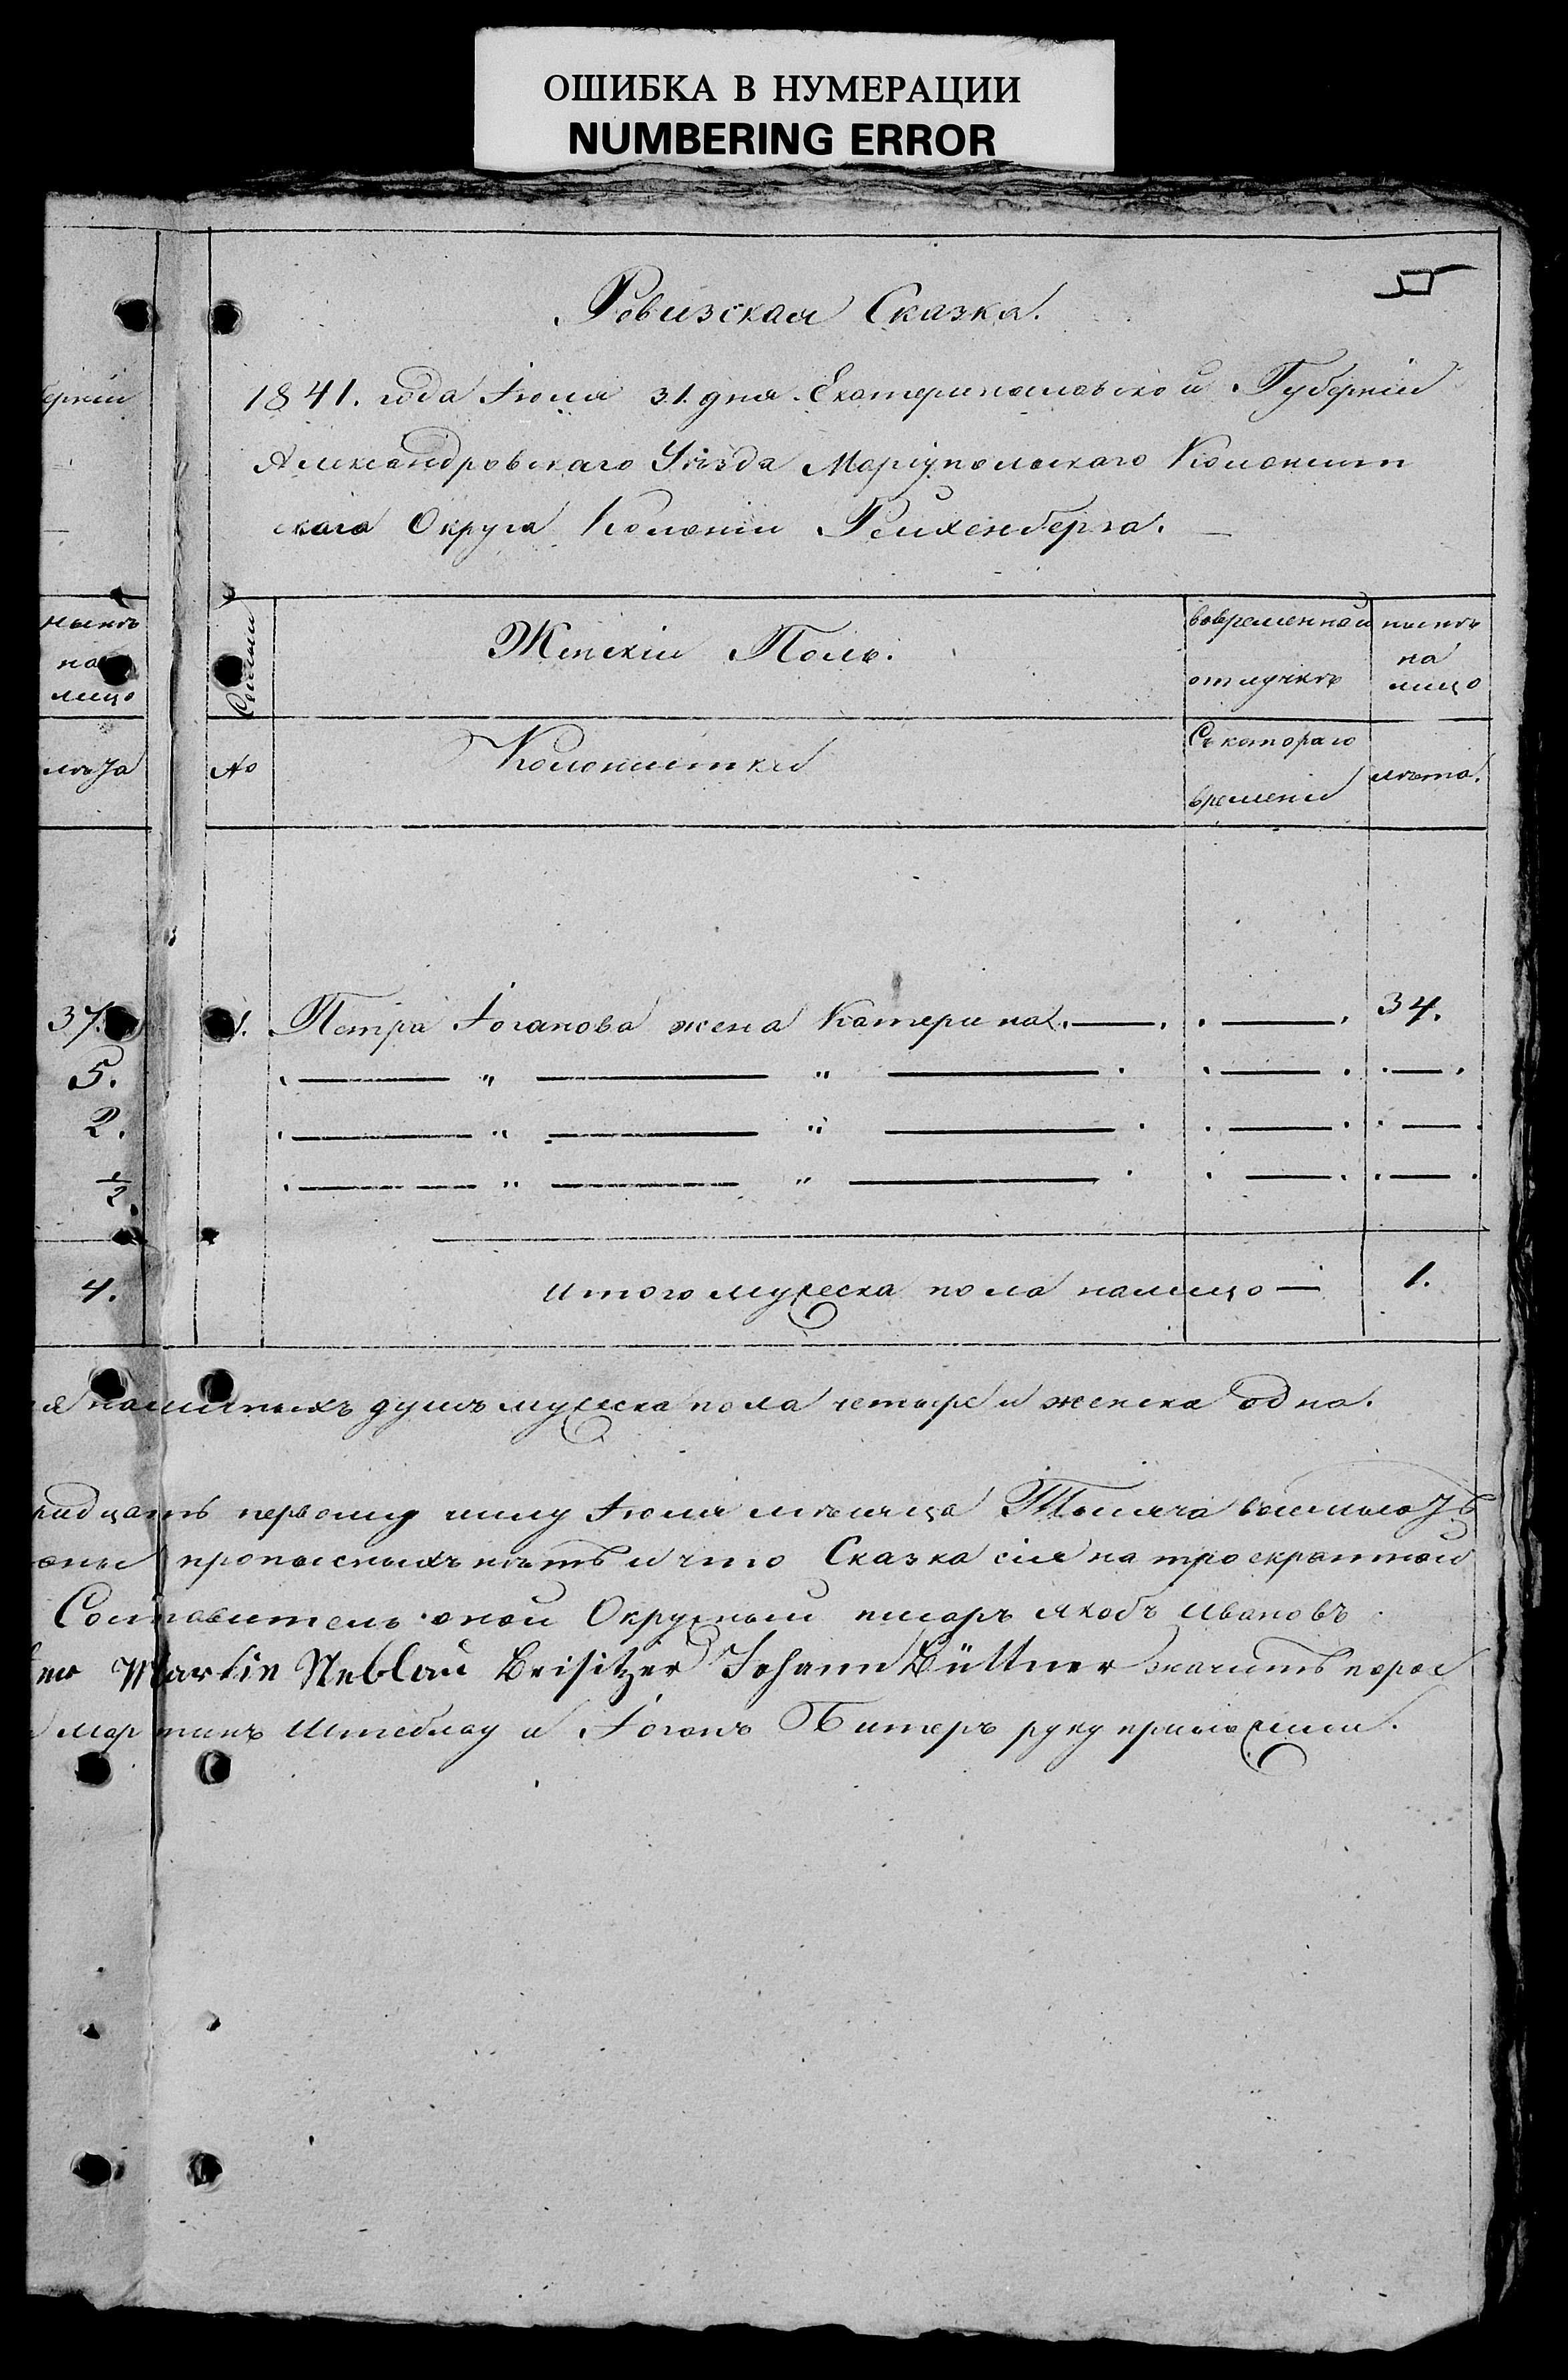 ОШИБКА В НУМЕРАЦИИ
NUMBERING ERROR
Ревизская Сказка.
ерніи
1841. года Іюля 31. дня Екатеринославской Губерніи
Александровскаго Уѣзда Маріупольскаго Колонист
скаго Округа Колоніи Рейхенберга.
нынѣ
на
лицо
Семьи
Женскій Полъ.
вовременной
отлучкѣ
нынѣ
на
лицо
лѣта
№
Колонистки
Съ котораго
времени
лѣта.
37.
1. Петра Іоганова жена Катерина. 34.
5.
2.
1/2.
4.
итого мужеска пола налицо — 1.
наличныхъ душъ мужеска пола четыре и женска одна.
ридцать первому числу Іюля мѣсяца Тысяча
прописныхъ нѣтъ и что Сказка сія на троекратной
Составитель оной Окружный писарь Якобъ Ивановъ
Martin Steblau Beisitzer Johann Büttner значитъ порос
мартинъ Штеблау и Іоганъ Битнеръ руку приложили.